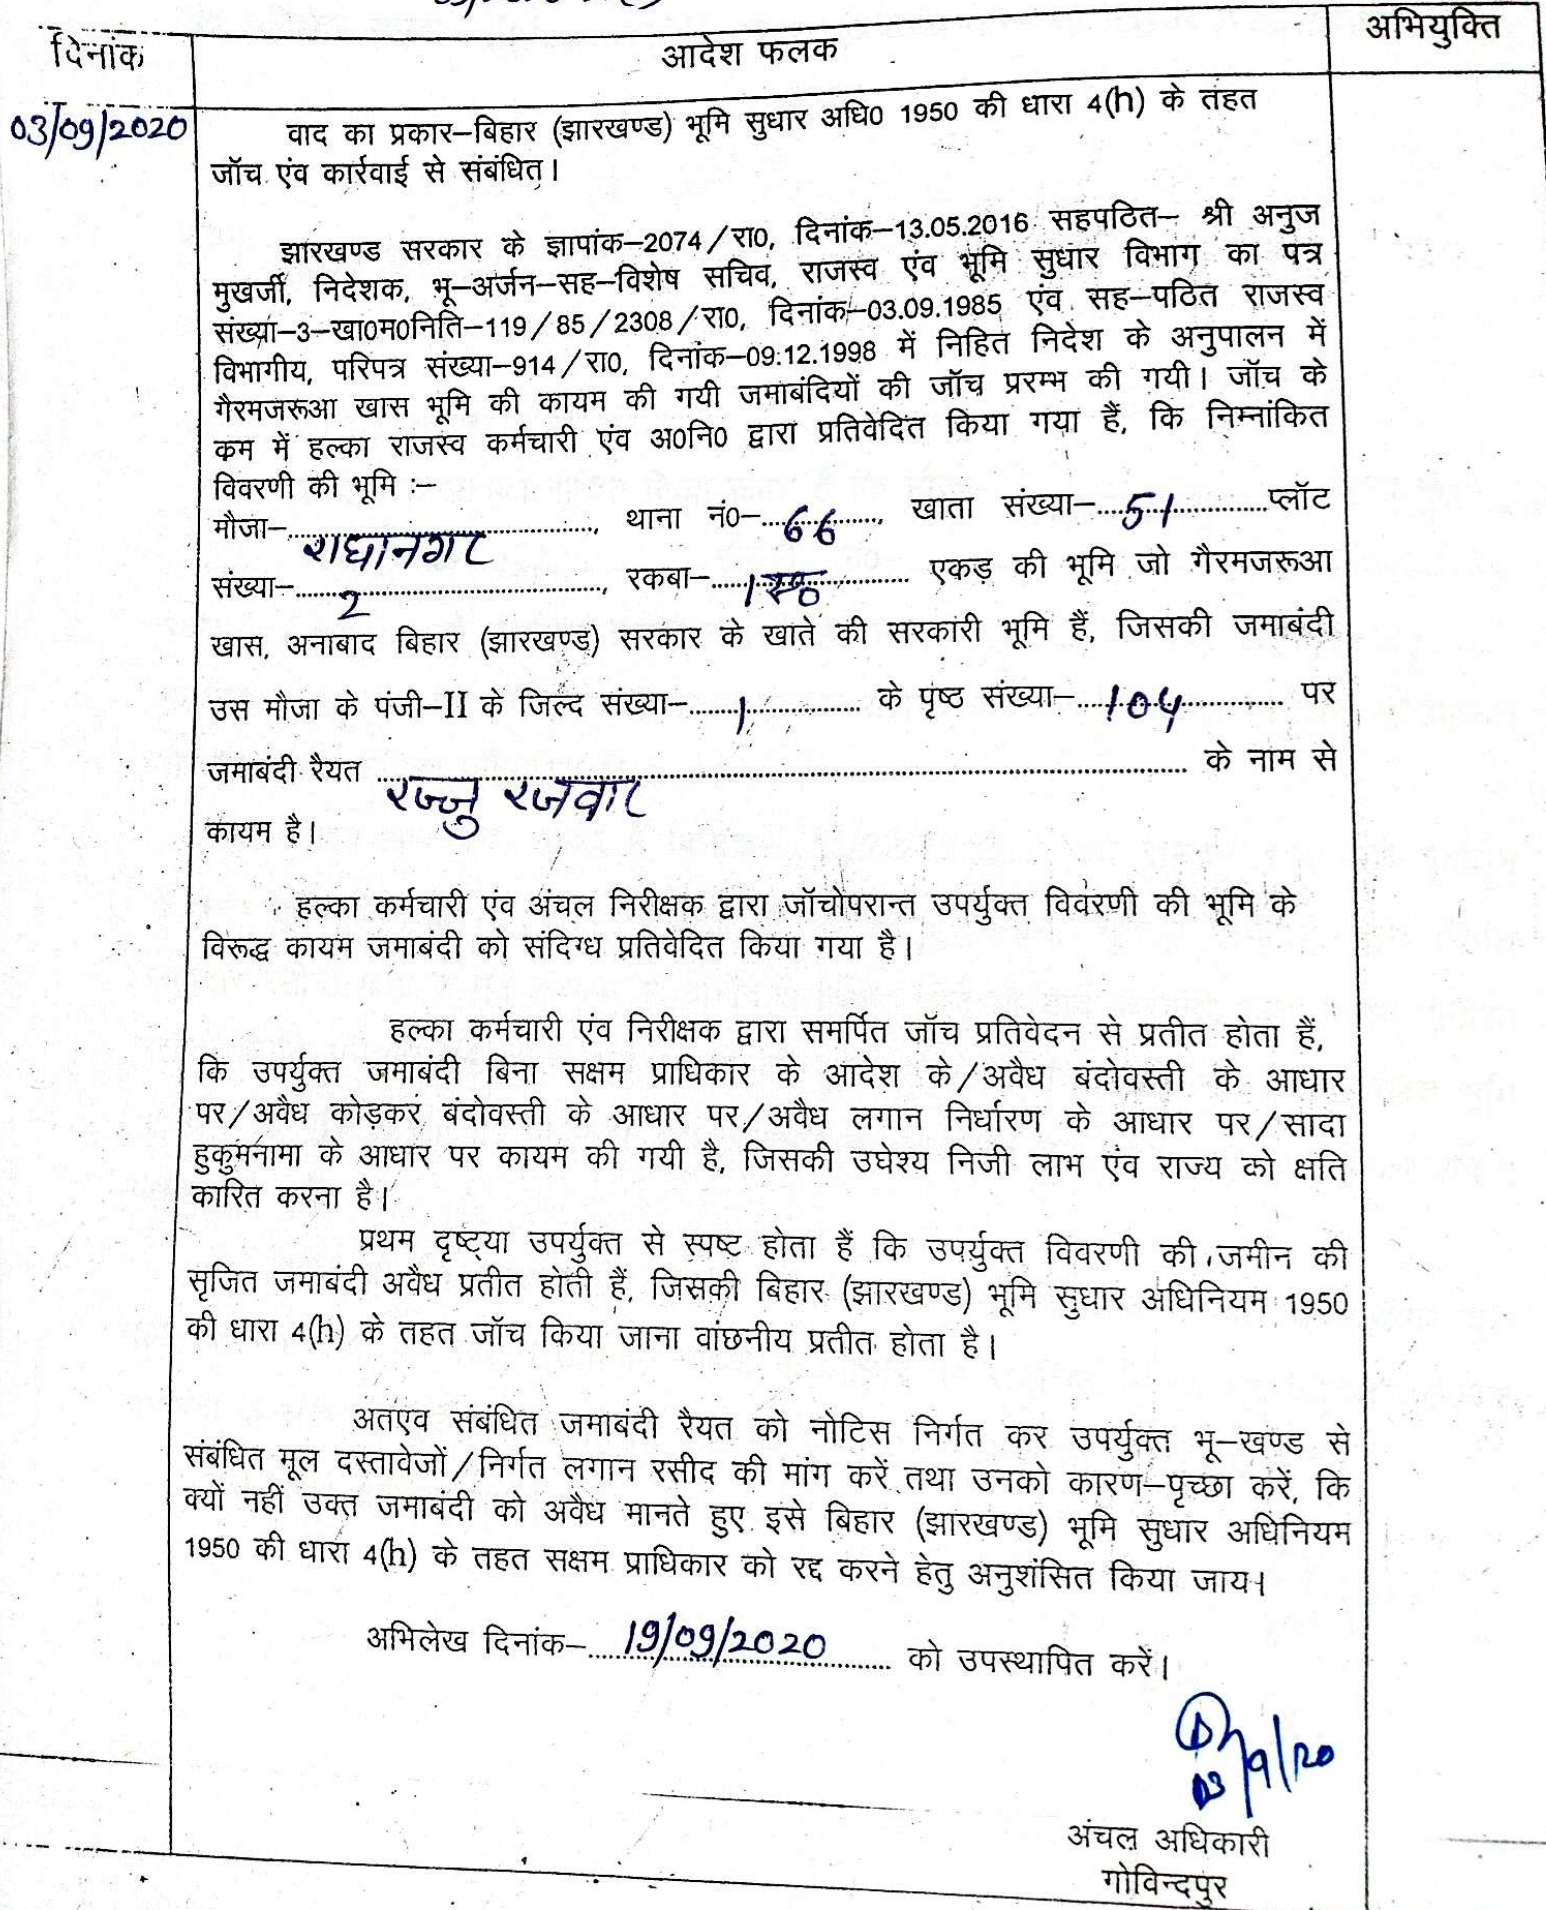 दिनांक
आदेश फलक
अभियुक्ति
03/09/2020
वाद का प्रकार–बिहार (झारखण्ड) भूमि सुधार अधि0 1950 की धारा 4(h) के तहत
जॉच एंव कार्रवाई से संबंधित।
झारखण्ड सरकार के ज्ञापांक–2074/रा0, दिनांक–13.05.2016 सहपठित– श्री अनुज
मुखर्जी, निदेशक, भू–अर्जन–सह–विशेष सचिव, राजस्व एंव भूमि सुधार विभाग का पत्र
संख्या–3–खा0म0निति–119/85/2308/रा0, दिनांक–03.09.1985 एंव सह–पठित राजस्व
विभागीय, परिपत्र संख्या–914/रा0, दिनांक–09.12.1998 में निहित निदेश के अनुपालन में
गैरमजरूआ खास भूमि की कायम की गयी जमाबंदियों की जॉच प्ररम्भ की गयी। जॉच के
कम में हल्का राजस्व कर्मचारी एंव अ0नि0 द्वारा प्रतिवेदित किया गया हैं, कि निम्नांकित
विवरणी की भूमि :–
मौजा–राधानगर, थाना नं0–66, खाता संख्या–51 प्लॉट
संख्या–2, रकबा– एकड़ की भूमि जो गैरमजरूआ
खास, अनाबाद बिहार (झारखण्ड) सरकार के खाते की सरकारी भूमि हैं, जिसकी जमाबंदी
उस मौजा के पंजी–II के जिल्द संख्या–1 के पृष्ठ संख्या–104 पर
जमाबंदी रैयत रज्जु रजवार के नाम से
कायम है।
हल्का कर्मचारी एंव अंचल निरीक्षक द्वारा जॉचोपरान्त उपर्युक्त विवरणी की भूमि के
विरूद्ध कायम जमाबंदी को संदिग्ध प्रतिवेदित किया गया है।
हल्का कर्मचारी एंव निरीक्षक द्वारा समर्पित जॉच प्रतिवेदन से प्रतीत होता हैं,
कि उपर्युक्त जमाबंदी बिना सक्षम प्राधिकार के आदेश के/अवैध बंदोवस्ती के आधार
पर/अवैध कोड़कर बंदोवस्ती के आधार पर/अवैध लगान निर्धारण के आधार पर/सादा
हुकुमनामा के आधार पर कायम की गयी है, जिसकी उघेश्य निजी लाभ एंव राज्य को क्षति
कारित करना है।
प्रथम दृष्ट्या उपर्युक्त से स्पष्ट होता हैं कि उपर्युक्त विवरणी की जमीन की
सृजित जमाबंदी अवैध प्रतीत होती हैं, जिसकी बिहार (झारखण्ड) भूमि सुधार अधिनियम 1950
की धारा 4(h) के तहत जॉच किया जाना वांछनीय प्रतीत होता है।
अतएव संबंधित जमाबंदी रैयत को नोटिस निर्गत कर उपर्युक्त भू–खण्ड से
संबंधित मूल दस्तावेजों/निर्गत लगान रसीद की मांग करें तथा उनको कारण–पृच्छा करें, कि
क्यों नहीं उक्त जमाबंदी को अवैध मानते हुए इसे बिहार (झारखण्ड) भूमि सुधार अधिनियम
1950 की धारा 4(h) के तहत सक्षम प्राधिकार को रद्द करने हेतु अनुशंसित किया जाय।
अभिलेख दिनांक–19/09/2020 को उपस्थापित करें।
03/9/20
अंचल अधिकारी
गोविन्दपुर